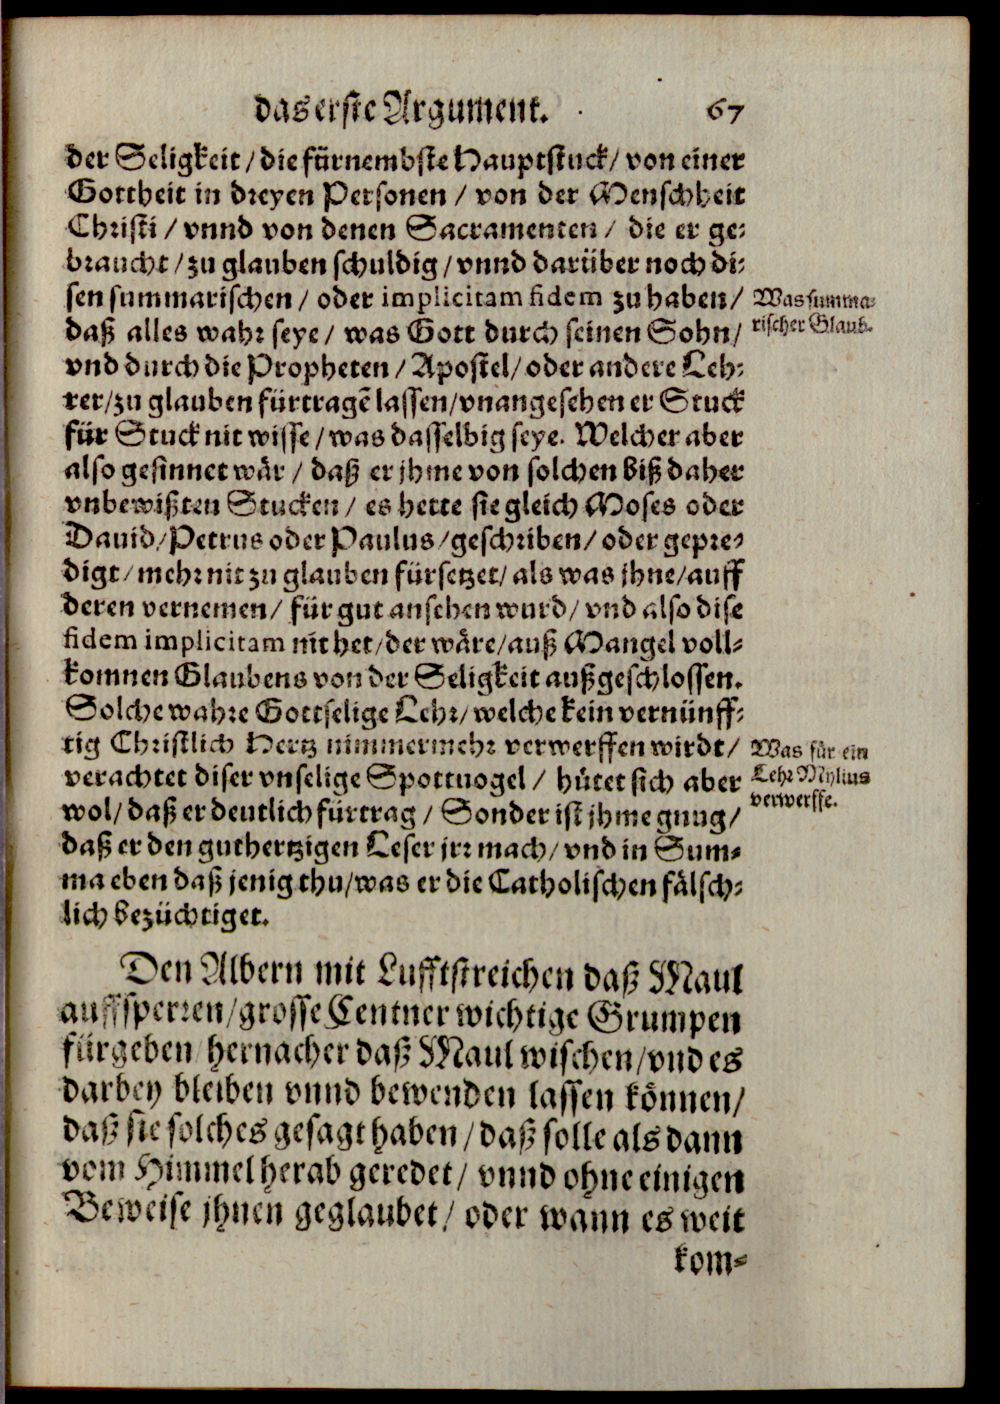 das erste Argument. 67
der Seligkeit / die fürnembste Hauptstuck / von einer
Gottheit in dreyen Personen / von der Menschheit
Christi / vnnd von denen Sacramenten / die er ge-
braucht / zu glauben schuldig / vnnd darüber noch di-
sen summarischen / oder implicitam fidem zu haben /
Was summa-
rischer Glaub.
daß alles wahr seye / was Gott durch seinen Sohn /
vnd durch die Propheten / Apostel / oder andere Leh-
rer / zu glauben fürtragẽ lassen / vnangesehen er Stuck
für Stuck nit wisse / was dasselbig seye. Welcher aber
also gesinnet wår / daß er jhme von solchen biß daher
vnbewißten Stucken / es hette sie gleich Moses oder
Dauid / Petrus oder Paulus / geschriben / oder gepre-
digt / mehr nit zu glauben fürsetzet / als was jhne / auff
deren vernemen / für gut ansehen wurd / vnd also dise
fidem implicitam nit het / der wåre / auß Mangel voll-
komnen Glaubens von der Seligkeit außgeschlossen.
Solche wahre Gottselige Lehr / welche kein vernünff-
tig Christlich Hertz nimmermehr verwerffen wirdt /
Was für ein
Lehr Mylius
verwerffe.
verachtet diser vnselige Spottuogel / hütet sich aber
wol / daß er deutlich fürtrag / Sonder ist jhme gnug /
daß er den guthertzigen Leser jrr mach / vnd in Sum-
ma eben daß jenig thu / was er die Catholischen fålsch-
lich bezüchtiget.
Den Albern mit Lufftstreichen daß Maul
auffsperren / grosse Centner wichtige Grumpen
fürgeben hernacher daß Maul wischen / vnd es
darbey bleiben vnnd bewenden lassen können /
daß sie solches gesagt haben / daß solle als dann
vom Himmel herab geredet / vnnd ohne einigen
Beweise jhnen geglaubet / oder wann es weit
kom-